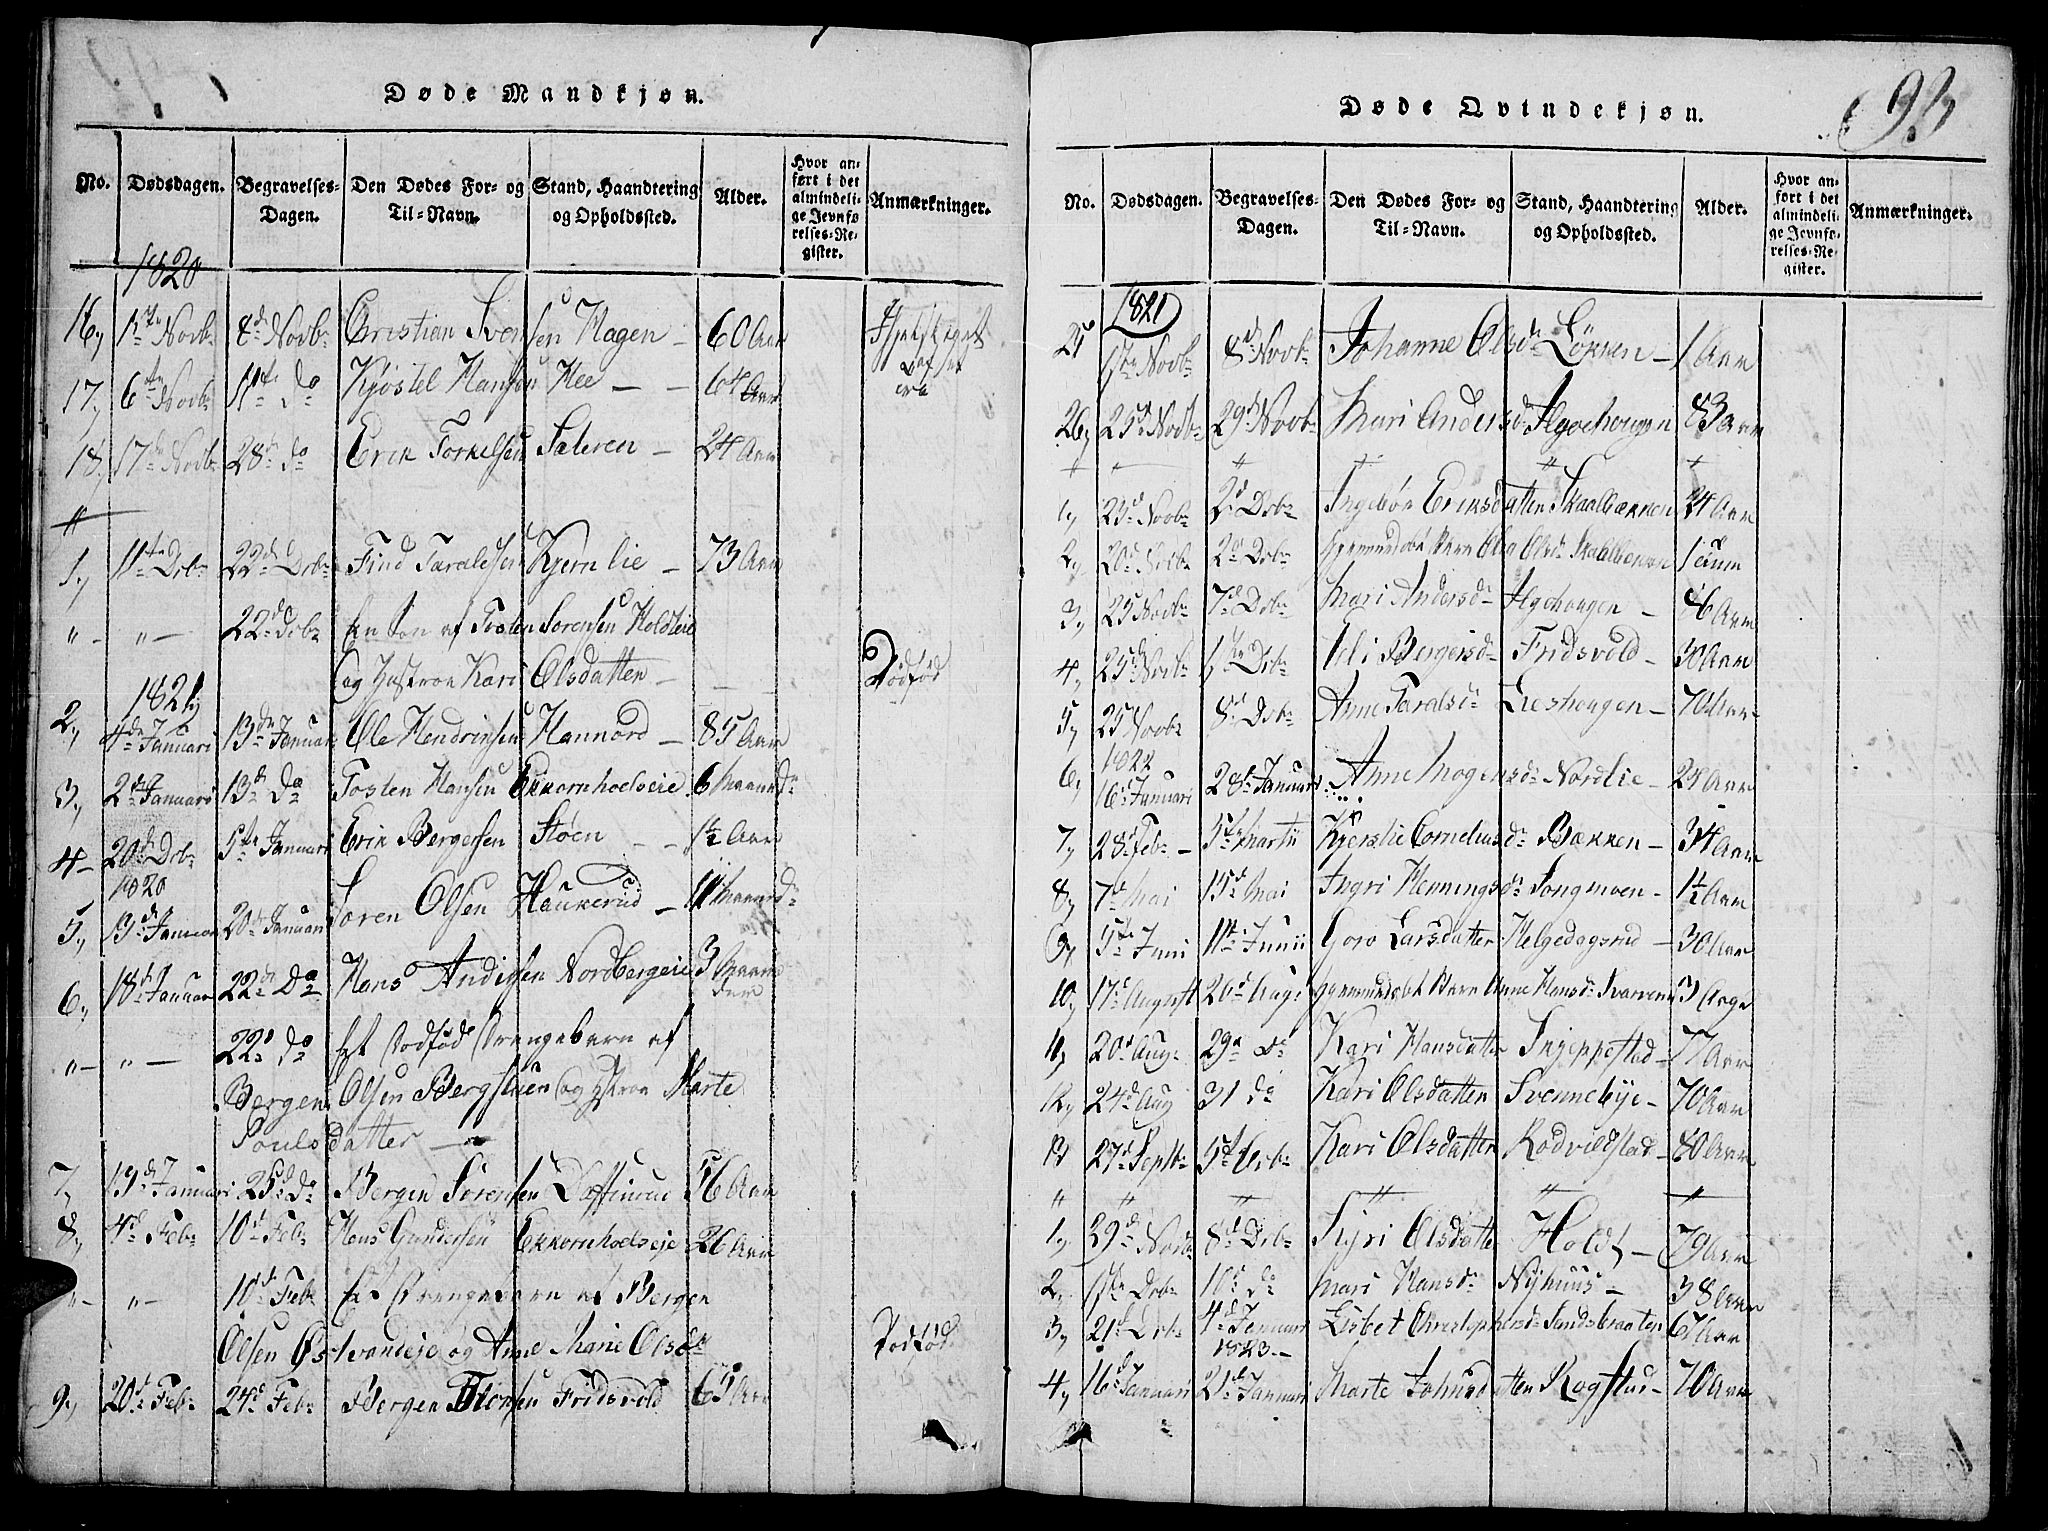 Døde Mandkjøn.
No. Dødsdagen. Begravelses-Dagen. Den Dødes For- og Til-Navn. Stand, Haandtering og Opholdssted. Alder. Hvor anført i det almindelige Jevnførelses-Register. Anmærkninger.
1820
16, 1ste Novbr 8de Novbr Christian Svensen Hagen — 60 Aar
17, 6te Novbr 11te do Kjøstel Hansen Hee — — 64 Aar
18, 17de Novbr 28de do Erik Torkelsen Sæteren — 24 Aar
1, 11te Debr 22de Debr Find Taraldsen Kjernlie — 73 Aar
" — " — 22de Debr En Søn af Tosten Sørensen Holdteie
og Hustroe Kari Olsdatten — Dødfød
1821,
2, 4de Januari 13de Januar Ole Hendriksen Hannord — 85 Aar
3, 2de Januari 13de Do Tosten Hansen Ekkornhoelseie 6 Maaneder
4 — 20de Debr 5te Januari Erik Bergersen Støen — — 1½ Aar
1820
5, 13de Januar 20de Januar Soren Olsen Haukerud — 11 Maander
6, 18de Januar 22de Do Hans Andersen Nordbergeie 3 Maaneder
" — " — 22de do Et Dødfød Drengebarn af
Bergen Olsen Bergsteen og Hstroe Marte
Poulsdatter —
7, 19de Januari 25de Do Bergen Sørensen 56 Aar
8, 4de Febr 10de Febr Hans Gundersen Ekkornhoelseje 26 Aar
" — " — 10de Febr Et Drengebarn af Bergen
Olsen Østvandeje og Anne Marie Olsdr Dødfød
9, 20de Febr 24de Febr Bergen Fridsvold 65 Aar
Døde Qvindekjøn.
93
No. Dødsdagen. Begravelses-Dagen. Den Dødes For- og Til-Navn. Stand, Haandtering og Opholdssted. Alder. Hvor anført i det almindelige Jevnførelses-Register. Anmærkninger.
1821
25 1ste Novbr 8de Novbr Johanne Olsdr Løkken — 1 Aar
26, 25de Novbr 29de Novbr Mari Andersdr 83 Aar
1, 23de Novbr 2de Debr Ingebør Eriksdatten Skaalbækken 24 Aar
2, 20de Novbr 2de Debr Hjemmedøbt Barn Olia Olsdr
3, 25 Novbr 7de Debr Mari Andersdr 86 Aar
4, 25de Novbr Debr Eli Bergersdr Fridsvold — 30 Aar
5, 25 Novbr 8de Debr Anne Taralsdr Lieshougen — 70 Aar
1822
6, 16de Januari 28de Januari Anne Mogensdr Nordlie — 25 Aar
7, 28de Febr — 5te Martii Kjerstie Corneliusdr Bækken — 34 Aar
8, 7de Mai 15de Mai Ingri Henningsdr Songmoen — 1½ Aar
9, 5te Juni 11te Junii Goro Larsdatter Helgedagsrud — 30 Aar
10, 17de August 26de Aug Hjemmedøbt Barn Anne Hansdr 3 Dage
11, 20de Aug. 29de do Kari Hansdatter Snjeppestad — 77 Aar
12, 24de Aug 31 do Kari Olsdatten Svennebye — 70 Aar
13 27de Septbr 5te Octbr Kari Olsdatten Rodvildstad — 80 Aar
1, 29de Novbr 8de Debr Sigri Olsdatter Hold — 79 Aar
2, 1ste Debr 10de do Mari Hansdr Nyhuus — 38 Aar
3, 21de Debr 4de Januar Lisbet Christophersdr Sandsbraaten 67 Aar
1823 —
4, 16de Januari 21de Januari Marte Rogstad — 70 Aar